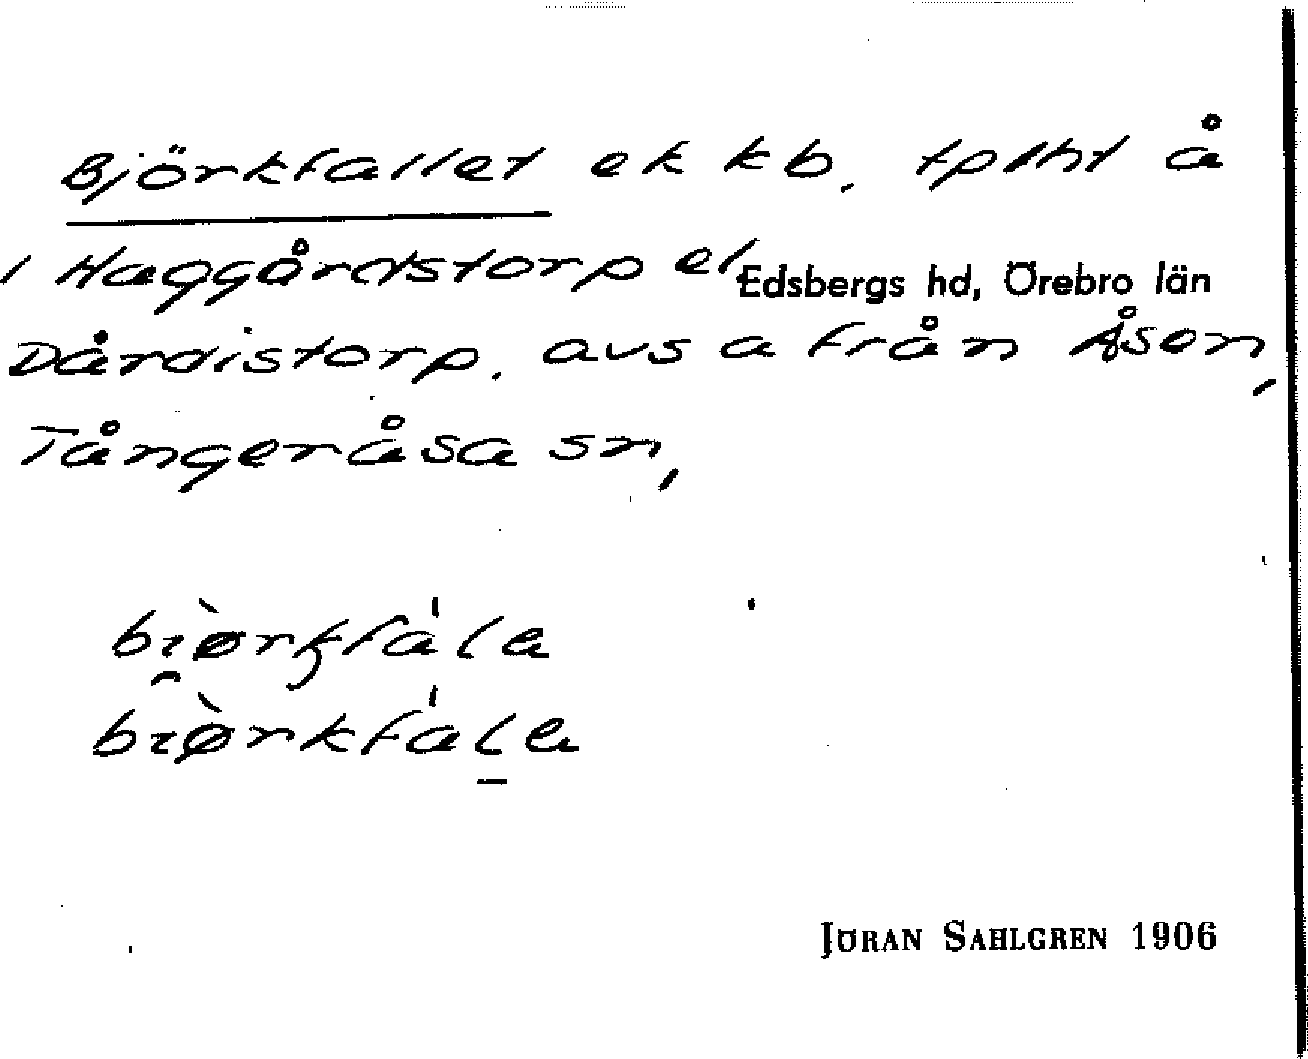 Björkfallet ek kb. tplht å
1 Haggårdstorp el
Edsbergs hd, Örebro län
Dårdistorp. avs a från Åsen,
Tångeråsa sn,
JÖRAN SAHLGREN 1906